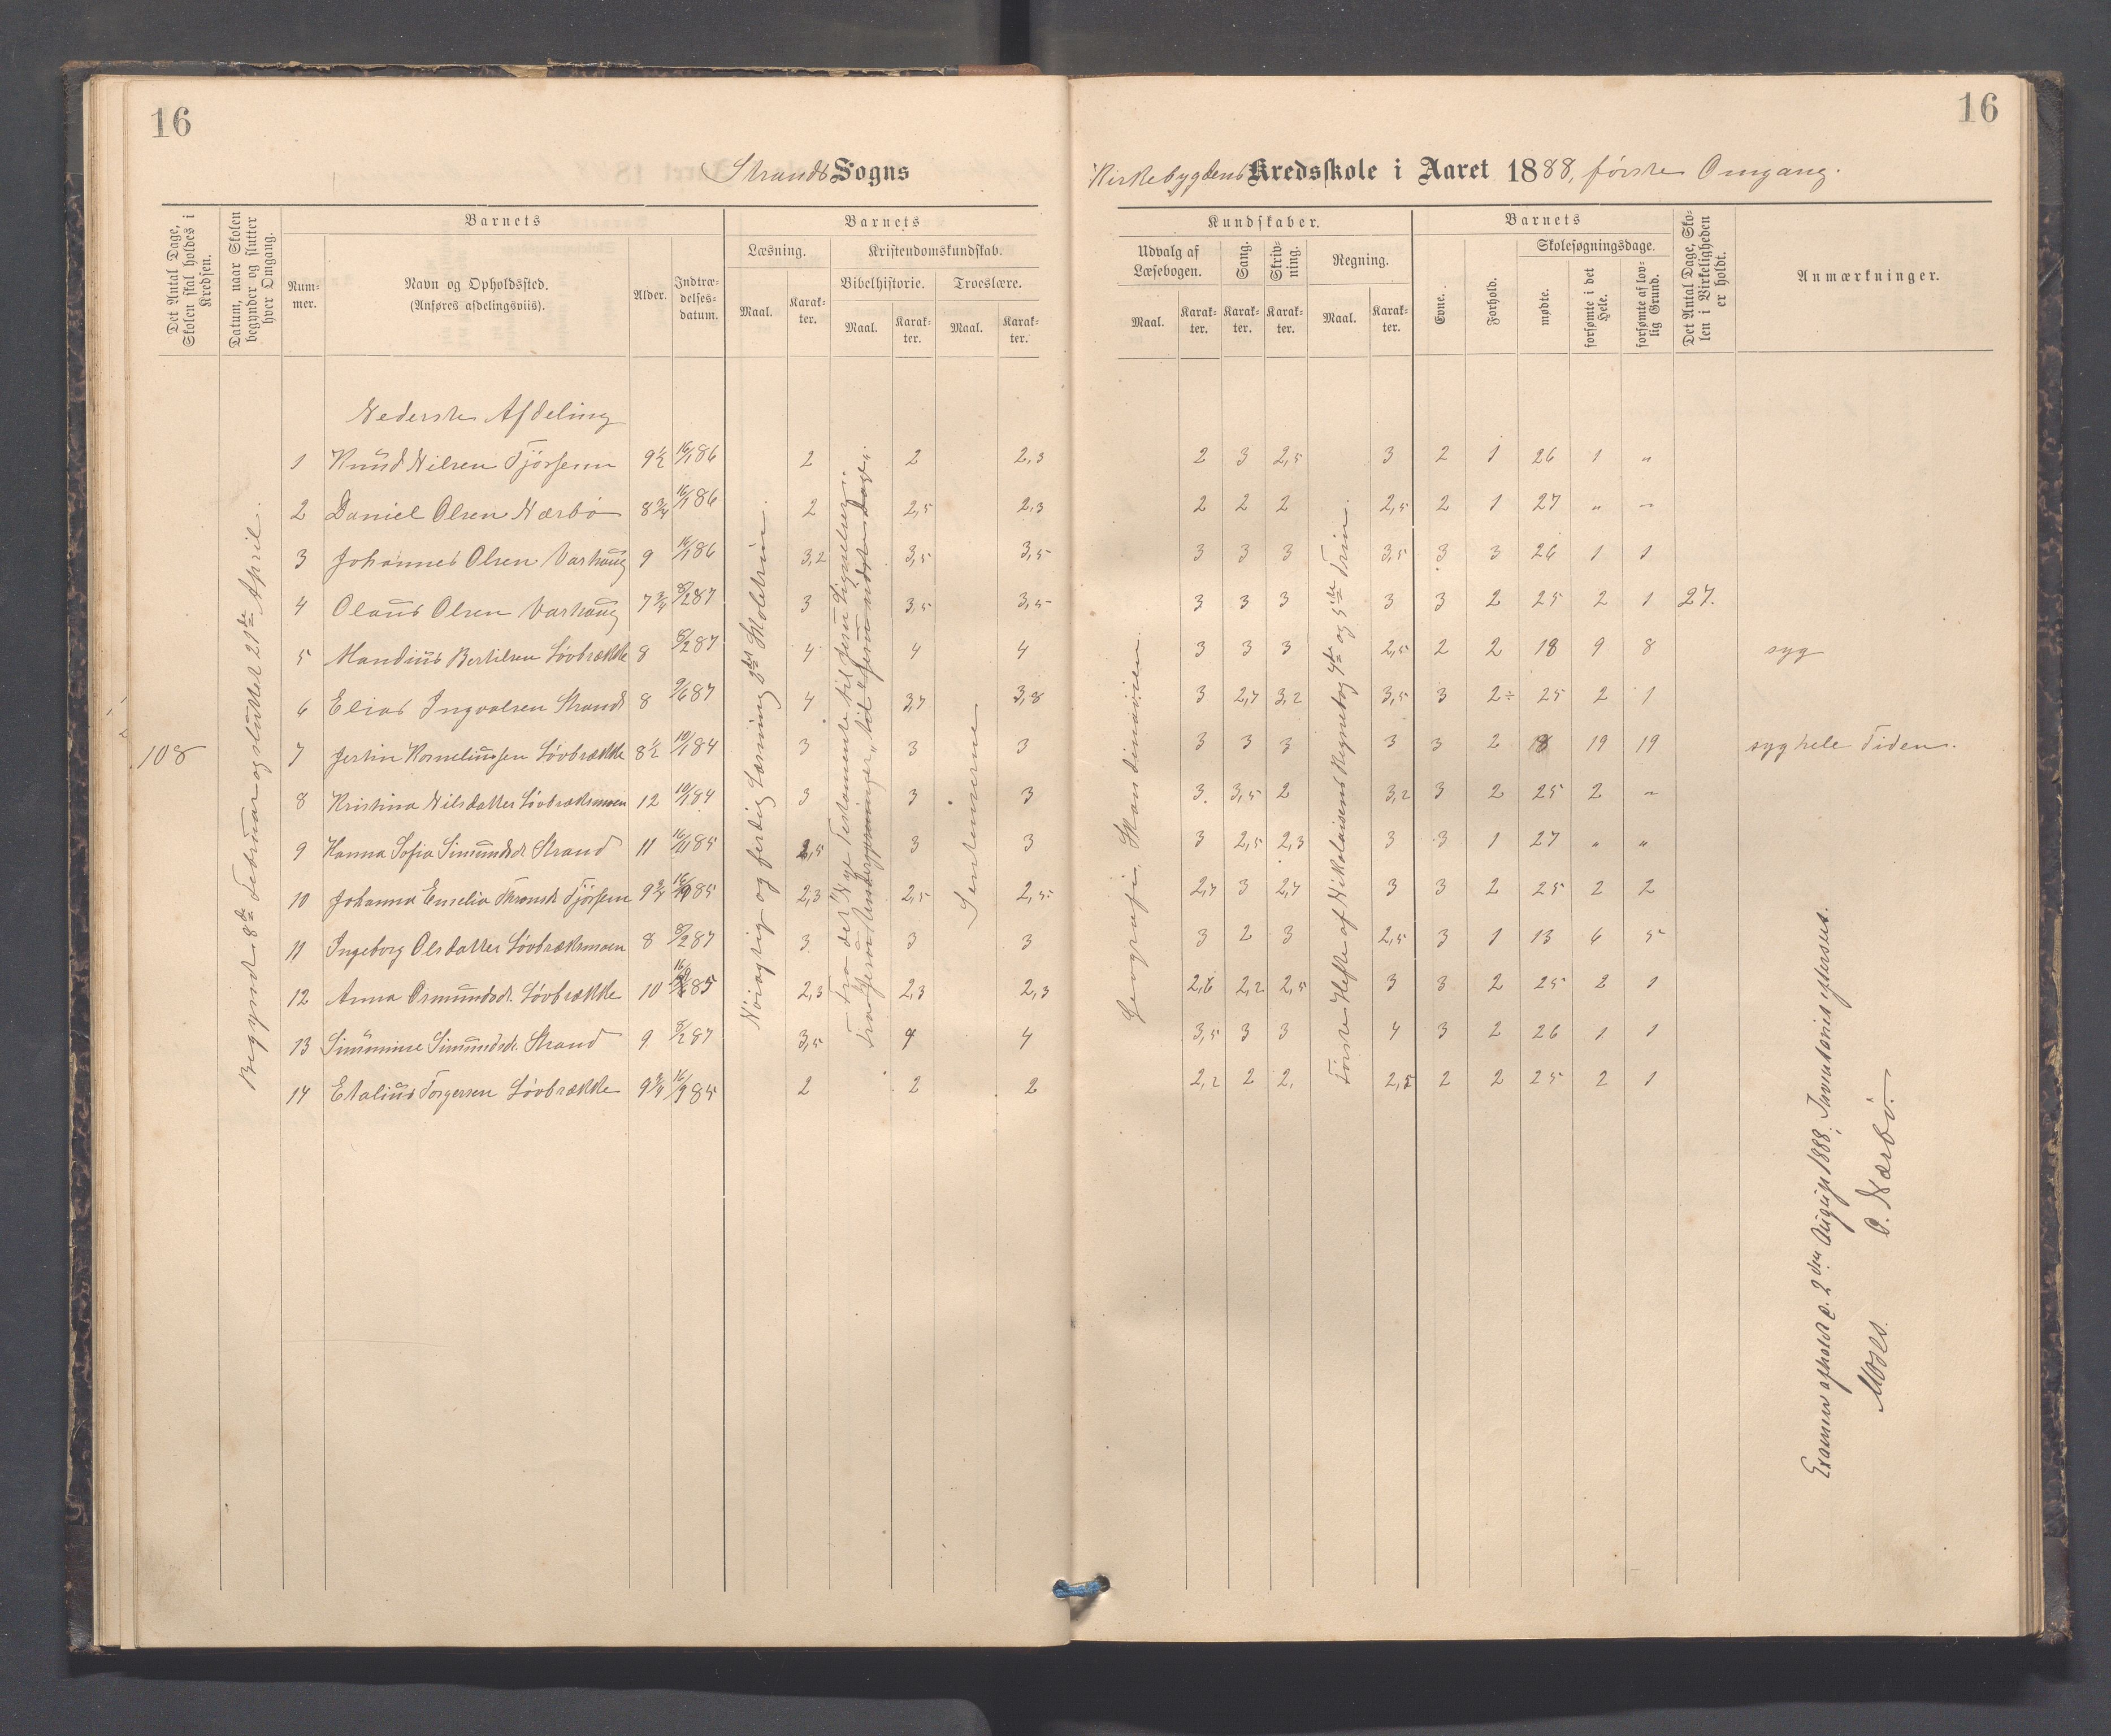 16
16
Strands Sogns
Kirkebygdens Kredsskole i Aaret 1888, første Omgang.
Det Antal Dage, Skolen skal holdes i Kredsen.
Datum, naar Skolen begynder og slutter hver Omgang.
Barnets
Num-mer.
Navn og Opholdssted.
(Anføres afdelingsviis).
Alder.
Indtræ-delses-datum.
Barnets
Læsning.
Kristendomskundskab.
Bibelhistorie.
Troeslære.
Maal.
Karak-ter.
Maal.
Karak-ter.
Maal.
Karak-ter.
Kundskaber.
Udvalg af Læsebogen.
Sang.
Skriv-ning.
Regning.
Maal.
Karak-ter.
Karak-ter.
Karak-ter.
Maal.
Karak-ter.
Barnets
Evne.
Forhold.
Skolesøgningsdage.
mødte.
forsømte i det Hele.
forsømte af lov-lig Grund.
Det Antal Dage, Sko-len i Virkeligheden er holdt.
Anmærkninger.
108
Begyndt 8de Februar og sluttet 21de April.
Nederste Afdeling
1 Knud Nilsen Tjössem 9½ 16/1 86 2 2 2,3 2 3 2,5 3 2 1 26 1 "
2 Daniel Olsen Nærbø 8¾ 16/1 86 2 2,5 2,3 2 2 2 2,5 2 1 27 " "
3 Johannes Olsen Varhaug 9 16/1 86 3,2 3,5 3,5 3 3 3 3,5 3 3 26 1 1
4 Olaus Olsen Varhaug 7¾ 8/2 87 3 3,5 3,5 3 3 3 3 3 2 25 2 1 27.
5 Mandius Bertilsen Lövbrække 8 8/2 87 4 4 4 3 3 3 2,5 2 2 18 9 8 syg
6 Elias Ingvalsen Strand 8 9/6 87 4 3,7 3,8 3 2,7 3,2 3,5 3 2÷ 25 2 1
7 Jertin Korneliussen Lövbrække 8½ 10/1 84 3 3 3 3 3 3 3 3 2 8 19 19 syg hele Tiden.
8 Kristina Nilsdatter Lövbrækmoen 12 10/1 84 3 3 3 3 3,5 2 3,2 3 2 25 2 "
9 Hanna Sofia Simundsdr Strand 11 16/11 85 2,5 3 3 3 2,5 2,3 3 3 1 27 " "
10 Johanna Emelia Tjössem 9¾ 16/9 85 2,3 2,5 2,5 2,7 3 2,7 3 3 2 25 2 2
11 Ingeborg Olsdatter Lövbrækmoen 8 8/2 87 3 3 3 3 2 3 2,5 3 1 13 6 5
12 Anna Osmundsdr. Lövbrække 10 85 2,3 2,3 2,3 2,6 2,2 2,5 3 3 2 25 2 1
13 Simmine Simundsdr. Strand 9 8/2 87 3,5 4 4 3,5 3 3 4 3 2 26 1 1
14 Etalius Torgersen Lövbrække 9¾ 16/9 85 2 2 2 2,2 2 2, 2,5 2 2 25 2 1
Nöiagtig og ferdig Læsning 3die Skoletrin.
Fra det "Nye Testamente til Jesu Lignelser;
fra Jesu Undergjerninger, til "Jesu sidste Dage".
Sentenserne
Geografi. Skandinavien.
Förste Hefte af Nikolaisens Regnebog 4de og 5te Trin.
Examen afholdt d. 2den August 1888; Inventariet efterseet.
Moses. O. Nærbö.